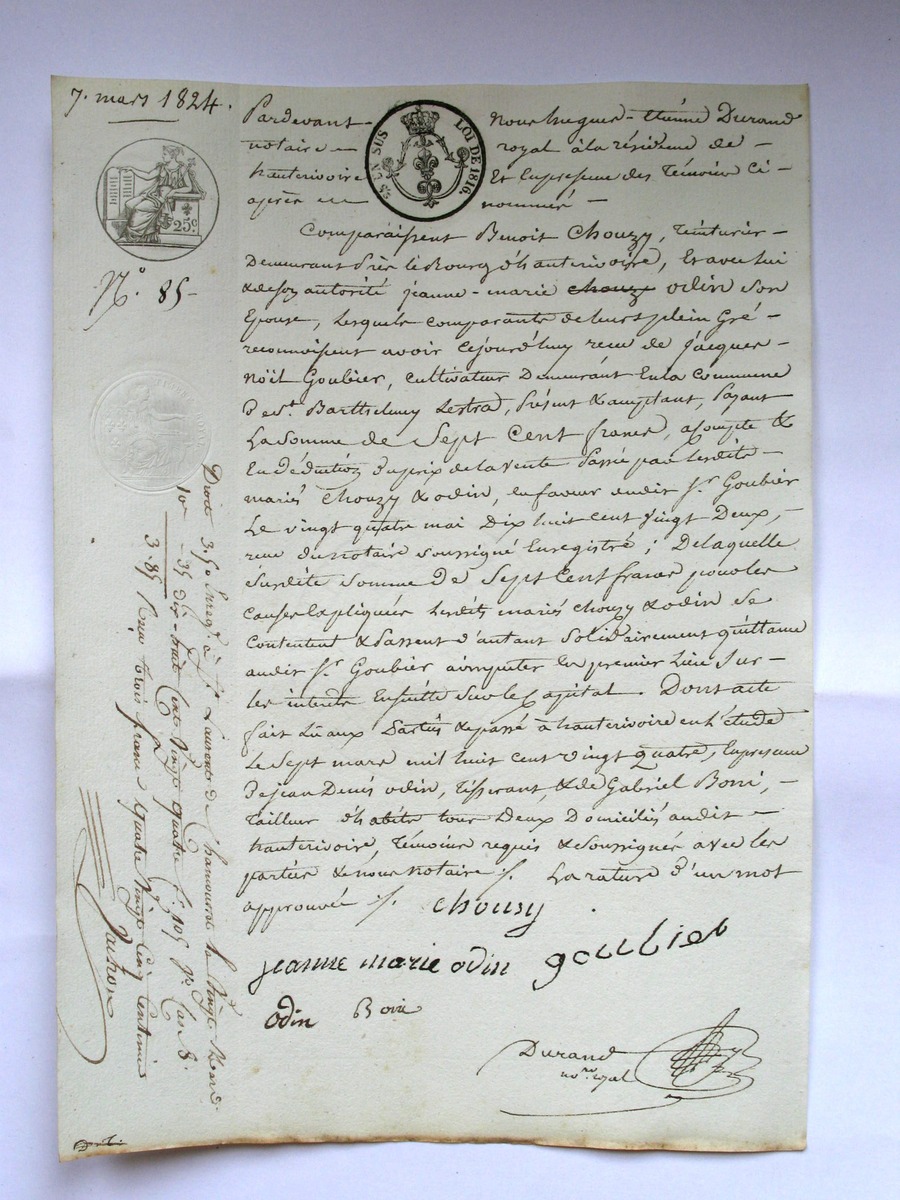 7. mars 1824.
Pardevant nous hugues étienne Durand
notaire royal à la résidence de
hauterivoire Et En presence des Témoins Ci
après nommés
LOI DE 1816.
EN SUS
25c
N.° 85
Comparaissent Benoit Chouzy, Teinturier
Demeurant Près le Bourg d'hauterivoire, Et avec lui
& de son autorité jeanne marie chouz odin Son
Epouse, Lesquels comparants de leurs plein Gré
reconnoissent avoir Cejourd'huy recu de jacques
Noël Goubier, Cultivateur Demeurant En la Commune
De St. Barthelemy Lestra, Présent & acceptant, Payant
La Somme de Sept Cent francs, a compte &
En déduction du prix de la vente Passé par lesdits
mariés Chouzy & odin, en faveur dudit Sr. Goubier
Le vingt quatre mai Dix huit cent vingt Deux,
recu du notaire soussigné Enregistré ; De laquelle
Susdite Somme de Sept Cent francs pour les
causes Expliquées Lesdits mariés chouzy & odin Se
Contentent & Passent d'autant Solidairement quittance
audit Sr. Goubier a imputer En premier Lieu Sur
les interets Ensuitte Sur le Capital. Dont acte
fait Lû aux Parties & passé à hauterivoire en L'étude
Le Sept mars mil huit cent vingt quatre, En presence
De jean Denis odin, Tisserant, & de Gabriel
Tailleur d'habits tous Deux Domiciliés audit
hauterivoire, Témoins requis & soussignés avec les
parties & nous notaire /. La rature d'un mot
approuvée /.
chousy
jeanne marie odin goubier
odin
Durand
nore. royal
Droits 3. 50 Enregé. à St. Laurent de Chamousset le vingt mars
10e - 35 dix-huit Cent vingt quatre f.° 105 V.° Case 8.
3. 85 Reçu trois francs quatre vingt Cinq Centimes